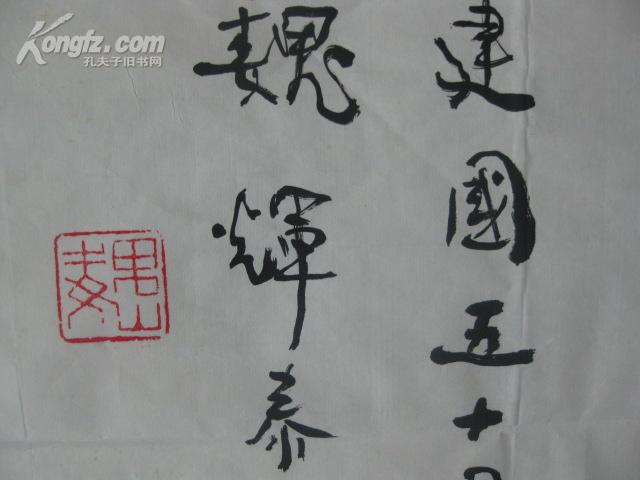 Kongfz.com
孔夫子旧书网
建國五十
魏輝泰